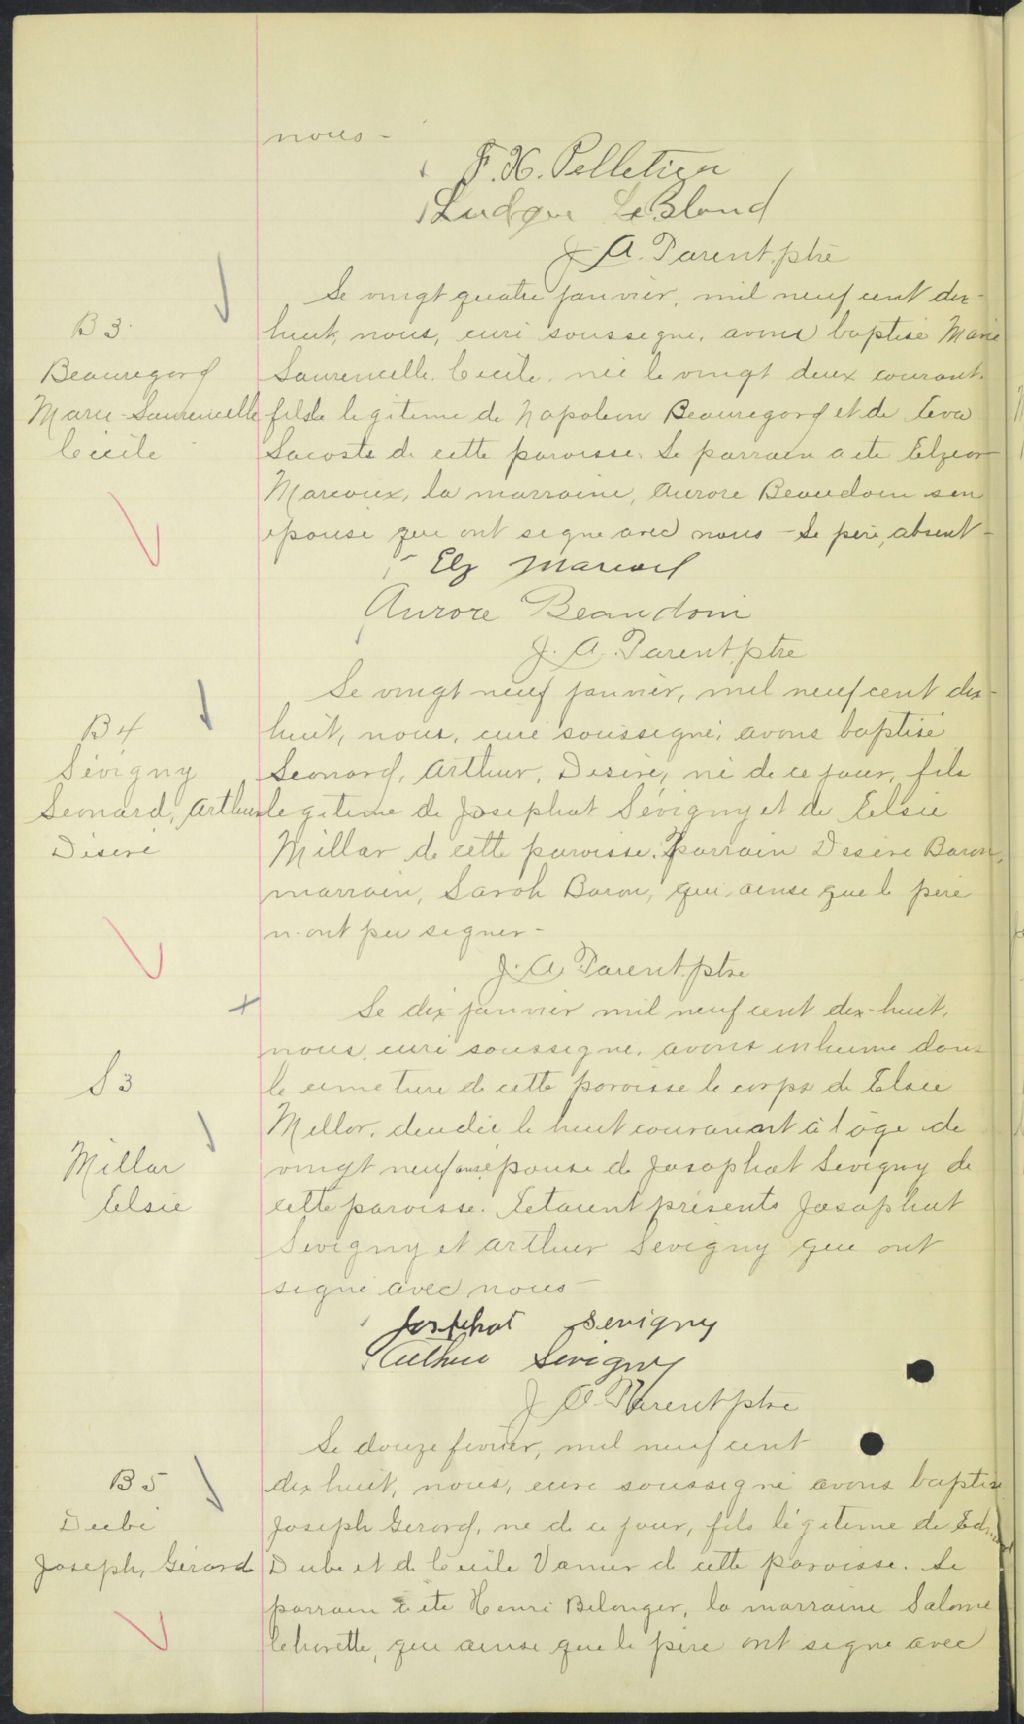 nous -
F. X. Pelletier
Ludger LeBlond
J. A. Parent ptre
Le vingt quatre janvier, mil neuf cent dix-
B 3
huit, nous, curé soussigné, avons baptisé Marie
Beauregard
Laurencelle Cécile, née le vingt deux courant
Marie Laurencelle
fille légitime de Napoleon Beauregard et de Eva
Cécile
Lacoste de cette paroisse. Le parrain a été Elzear
Marcoux, la marraine, Aurore Beaudoin son
épouse qui ont signé avec nous - Le père, absent -
Elz Marcoux
Aurore Beaudoin
J. A. Parent ptre
Le vingt neuf janvier, mil neuf cent dix-
B 4
huit, nous, curé soussigné, avons baptisé
Sévigny
Leonard, Arthur, Désiré, né de ce jour, fils
Leonard, Arthur
légitime de Josaphat Sévigny et de Elsie
Désiré
Millar de cette paroisse. Parrain Désiré Baron,
marrain, Sarah Baron, qui ainsi que le père
n'ont pu signer -
J. A. Parent ptre
Le dix janvier mil neuf cent dix-huit,
nous, curé soussigné, avons inhumé dans
S 3
le cimetière de cette paroisse le corps de Elsie
Millar, décédée le huit courant à l'âge de
Millar
vingt neuf ans épouse de Josaphat Sévigny de
Elsie
cette paroisse. Etaient présents Josaphat
Sévigny et Arthur Sévigny qui ont
signé avec nous -
Josephat Sevigny
Arthur Sévigny
J. A. Parent ptre
Le douze fevrier, mil neuf cent
B 5
dix huit, nous, curé soussigné avons baptisé
Dubé
Joseph Gérard, né de ce jour, fils légitime de
Joseph, Gérard
Dubé et de Cécile Vanier de cette paroisse. Le
parrain a été Henri Belanger, la marraine Salomé
qui ainsi que le père ont signé avec